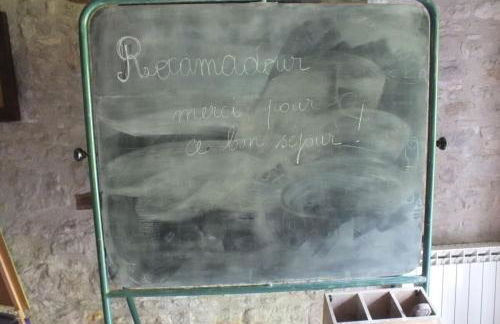 Rocamadour
merci pour
ce bon séjour.